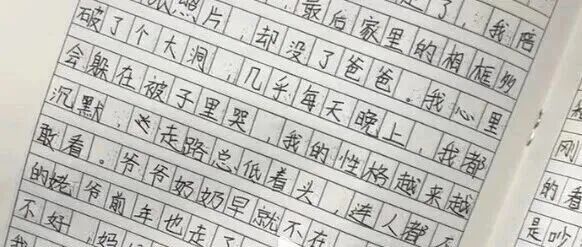 走了，我陪
最后家里的相框多
照片，却没了爸爸。我心里
破了个大洞，几乎每天晚上，我都
会躲在被子里哭，我的性格越来越
沉默，走路总低着头，连人都不
敢看。爷爷奶奶早就不在
的姥爷前年也走了
不好，妈
我
刚
的看
是吵